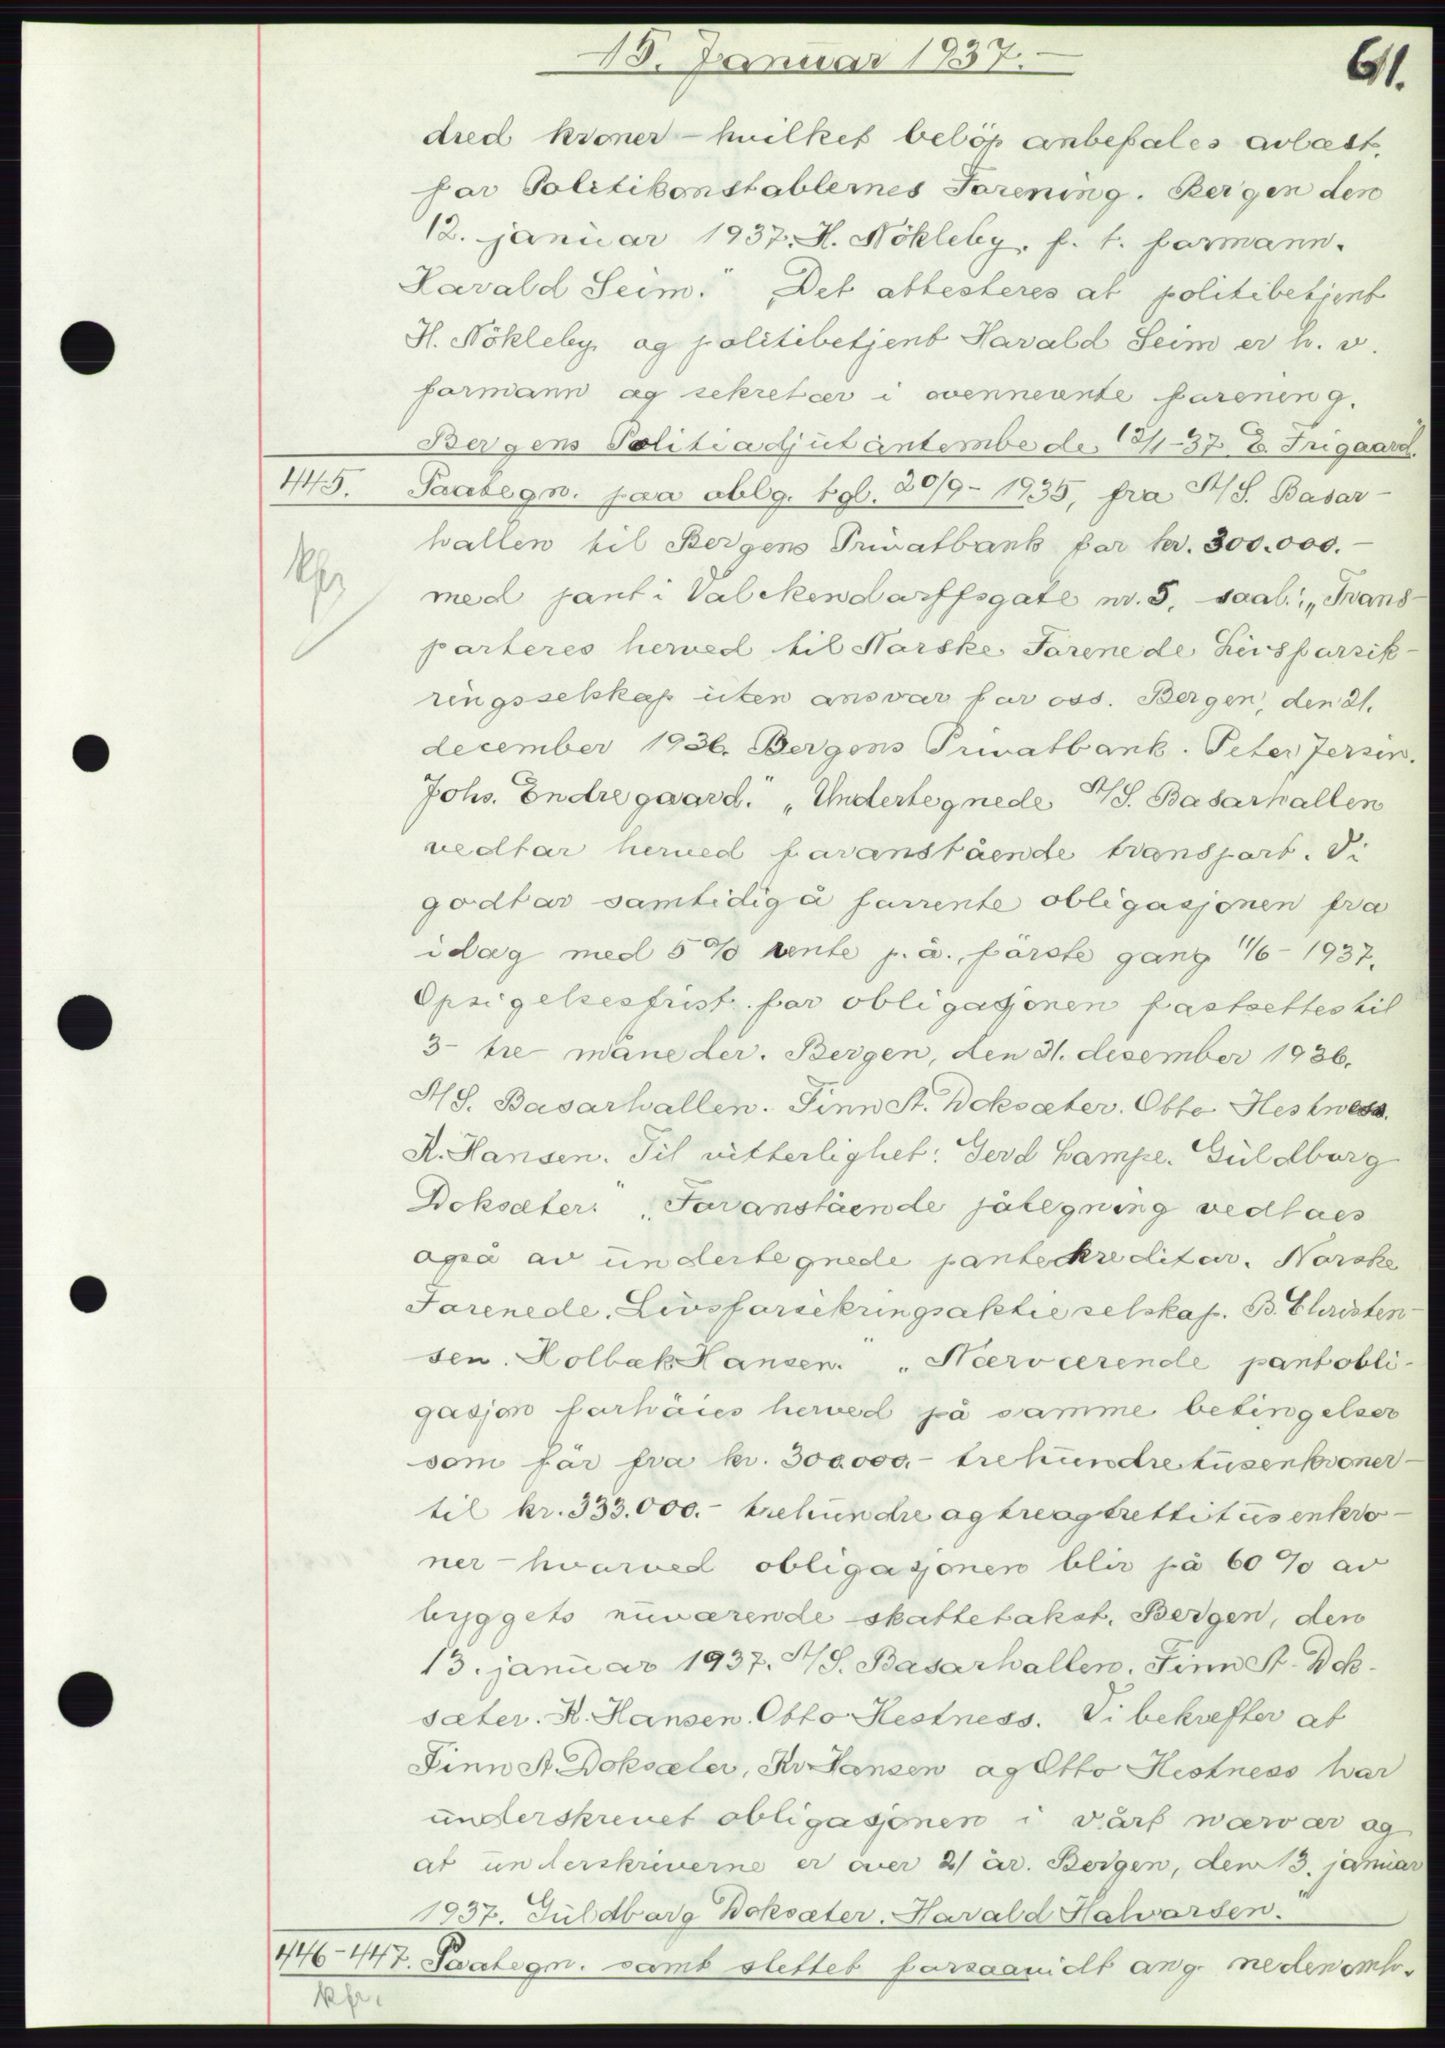 15. Januar 1937.
611.
dred kroner – hvilket beløp anbefales avlæst.
for Politikonstablernes Forening. Bergen den
12. januar 1937. H. Nökleby. f. t. formann.
Harald Seim." „Det attesteres at politibetjent
H. Nökleby og politibetjent Harald Seim er h. v.
formann og sekretær i ovennevnte forening.
Bergens Politiadjutantembede, 13/1-37. E. Frigaard."
445. Paategn. paa oblg. tgl. 20/9-1935, fra A/S. Basar-
hallen til Bergens Privatbank for kr. 300.000.-
kfr
med pant i Valckendorffsgate nr. 5, saal.: „Trans-
porteres herved til Norske Forenede Livsforsik-
ringsselskap uten ansvar for oss. Bergen, den 21.
december 1936. Bergens Privatbank. Peter Jersin.
Johs. Endregaard." „Undertegnede A/S. Basarhallen
vedtar herved foranstående transport. Vi
godtar samtidig å forrente obligasjonen fra
idag med 5% rente p. a., förste gang 11/6-1937.
Opsigelsesfrist for obligasjonen fastsettes til
3- tre- måneder. Bergen, den 31. desember 1936.
A/S. Basarhallen. Finn A. Doksæter. Otto Hestness.
K. Hansen. Til vitterlighet: Gerd Lampe. Guldborg
Doksæter." „Foranstående påtegning vedtaes
også av undertegnede pantekreditor. Norske
Forenede Livsforsikringsaktieselskap. B. Christen-
sen. Holbæk Hansen." „Nærværende pantobli-
gasjon forhöies herved på samme betingelser
som för fra kr. 300.000.- trehundretusenkroner-
til kr. 333.000.- trehundreogtreogtrettitusenkro-
ner – hvorved obligasjonen blir på 60% av
byggets nuværende skattetakst. Bergen, den
13. januar 1937. A/S. Basarhallen. Finn A. Dok-
sæter. K. Hansen. Otto Hestness. Vi bekrefter at
Finn A. Doksæter, Kr Hansen og Otto Hestness har
underskrevet obligasjonen i vårt nærvær og
at underskriverne er over 21 år. Bergen, den 13. januar
1937. Guldborg Doksæter. Harald Halvorsen."
446-447. Paategn. samt slettet forsaavidt ang. nedenomh.
kfr.